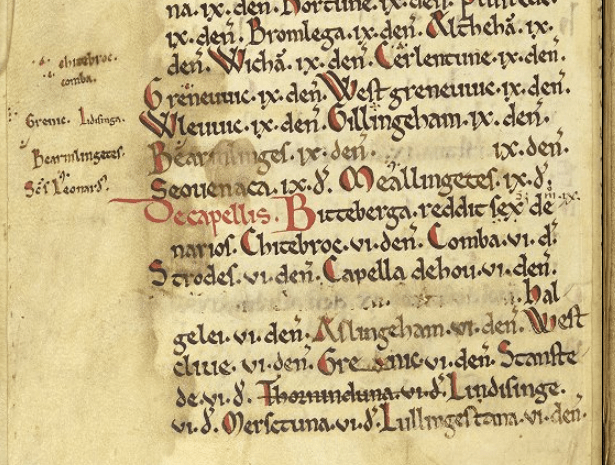 na. ix. den̄. Nortune. ix. den̄.
ix. den̄. Bromlega. ix. den̄. Altheha. ix.
den̄. Wicha. ix. den̄. Cerlentune. ix. den̄.
Greneuuic. ix. den̄. West greneuuic. ix. den̄.
Wleuuic. ix. den̄. Gillingeham. ix. den̄.
Bearmlinges. ix. den̄. ix. den̄.
Seouenaca. ix. đ. Meallingetes. ix. đ.
De capellis. Bitteberga. reddit sex de
narios. Chitebroc. vi. den̄. Comba. vi. đ.
Strodes. vi. den̄. Capella de hou. vi. den̄.
Hal
gelei. vi. den̄. Aslingeham. vi. den̄. West
cliue. vi. den̄. Gre nic. vi. den̄. Stanste
de. vi. đ. Thorninduna. vi. đ. Lindisinge.
vi. đ. Mersctuna. vi. đ. Lullingestana. vi. den̄.
chitebroc.
comba.
Grenic. Lidisinga.
Bearmlingetes.
Sc̄s Leonard'.